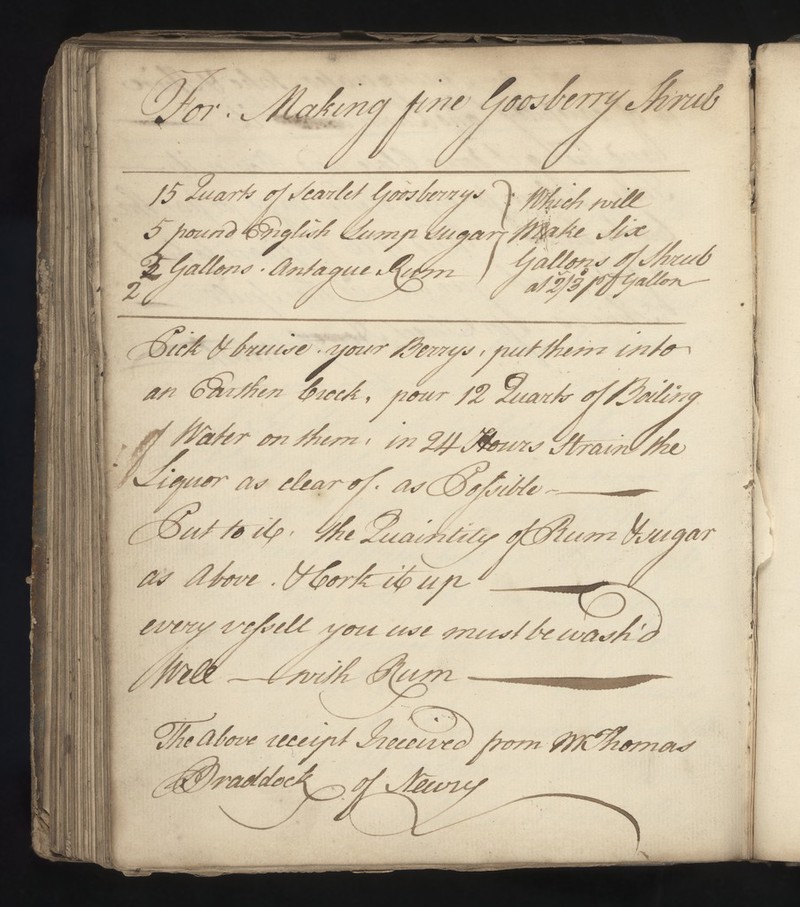 For. Making fine Goosberry Shrub
15 Quarts of Scarlet Goosberrys } Which will
5 pound English Lump Sugar Make Six
Gallons. Antague Rum Gallons of Shrub
2 at 2/3 pr Gallon
Pick & bruise. your Berrys, put them into
an Earthen Crock, pour 12 Quarts of Boiling
Water on them, in 24 Hours Strain the
Liquor as clear of. as Possible
Put to it. the Quaintity of Rum & Sugar
as Above. & Cork it up
every vessell you use must be wash'd
Well — with Rum
The above receipt I received from Mr Thomas
Braddock of Newry